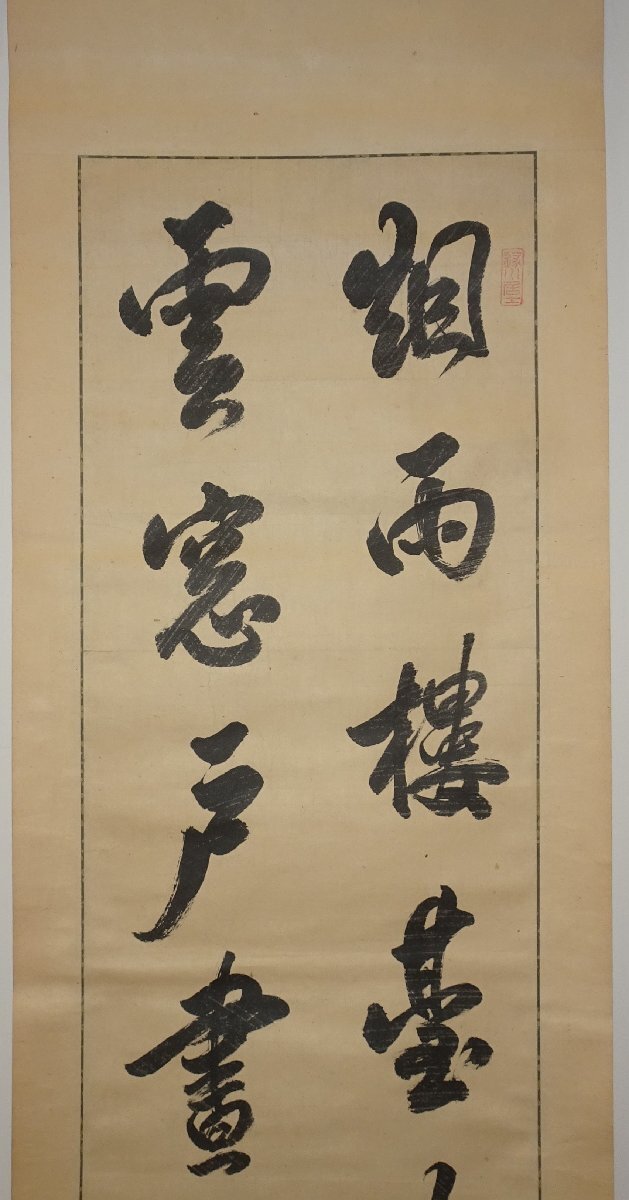 烟雨樓臺
雲窓戸畫